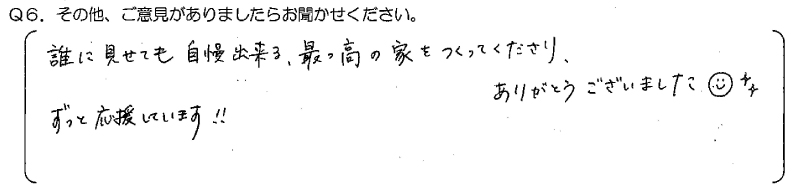 Q6．その他、ご意見がありましたらお聞かせください。
誰に見せても自慢出来る、最っ高の家をつくってくださり、
ありがとうございました
ずっと応援しています!!